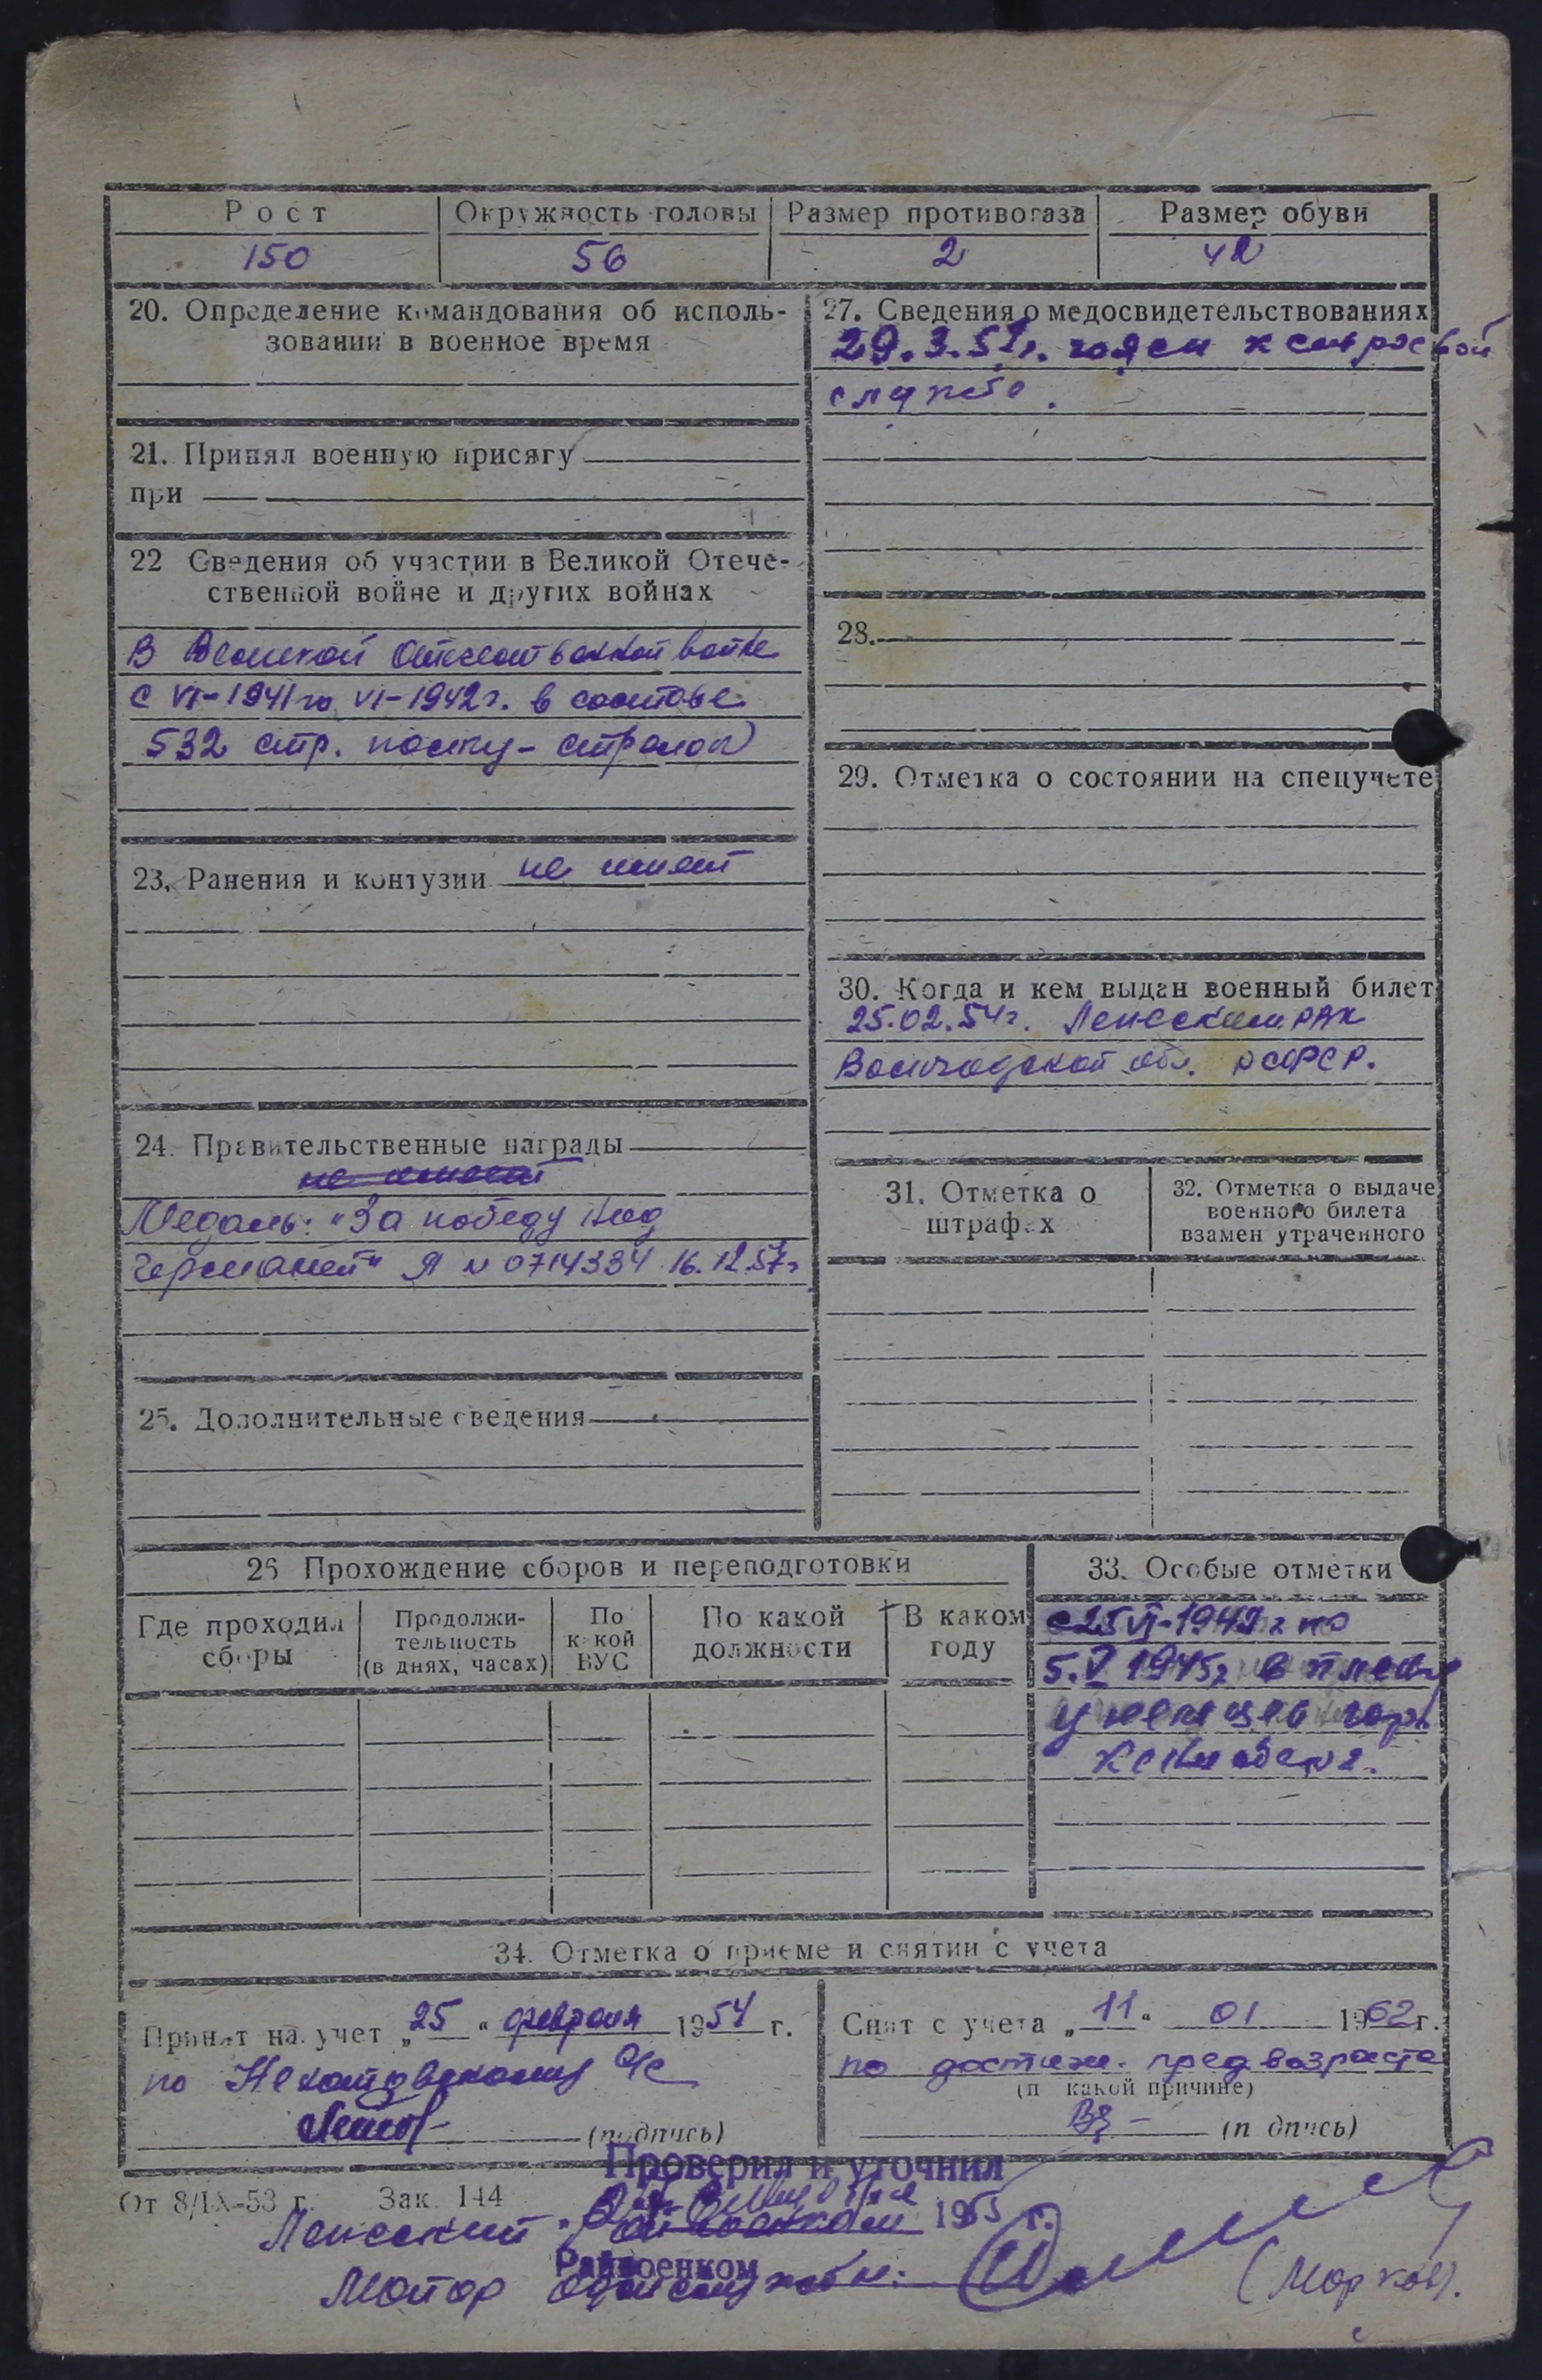 Рост Окружность головы Размер противогаза Размер обуви
150 56 2 42
20. Определение командования об исполь-
зовании в военное время
21. Принял военную присягу
при
22 Сведения об участии в Великой Отече-
ственной войне и других войнах
В Великой Отечественной войне
с VI-1941 по VI-1942 г. в составе
532 стр. полку - стрелок
23. Ранения и контузии не имеет
24. Правительственные награды
не имеет
Медаль: "За победу над
Германией" Я № 0714334 16.12.57г
25. Дополнительные сведения
27. Сведения о медосвидетельствованиях
29.3.51г. годен к строевой
службе.
28.
29. Отметка о состоянии на спецучете
30. Когда и кем выдан военный билет
25.02.54г. Ленским РВК
Вологодской обл. РСФСР.
31. Отметка о
штрафах
32. Отметка о выдаче
военного билета
взамен утраченного
26 Прохождение сборов и переподготовки
Где проходил
сборы
Продолжи-
тельность
(в днях, часах)
По
какой
ВУС
По какой
должности
В каком
году
33. Особые отметки
с 25 VI-1942 г по
5.V 1945г в плену
у немцев гор.
34. Отметка о приеме и снятии с учета
Принят на учет „25“ февраля 1954 г.
по
(подпись)
Снят с учета „11“ 01 1962 г.
по достиж. пред. возраста
(п какой причине)
(п дпись)
Проверил и уточнил
От 8/IX-53 г. Зак. 144
1955 г.
Райвоенком
Майор
(Марков).